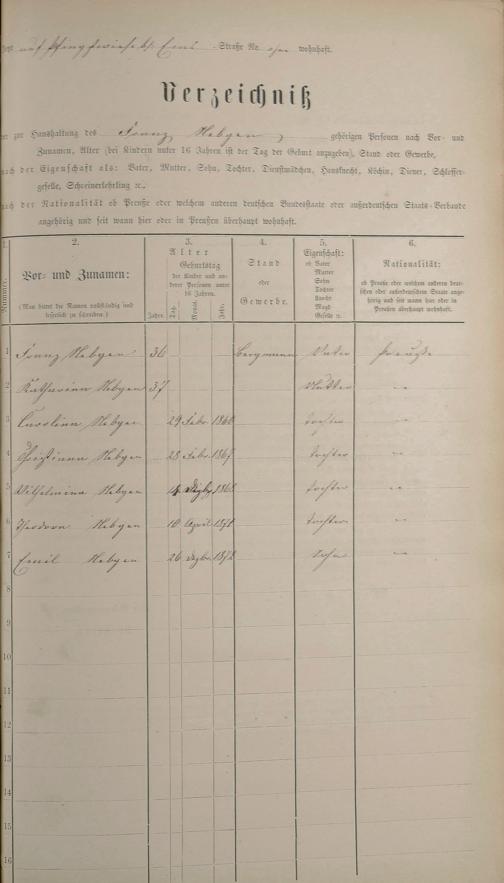 auf Pfingstwiese b. Ems Straße Nr. ohne wohnhaft.
Verzeichniß
der zur Haushaltung des Franz Hebgen gehörigen Personen nach Vor- und
Zunamen, Alter (bei Kindern unter 16 Jahren ist der Tag der Geburt anzugeben), Stand oder Gewerbe,
nach der Eigenschaft als: Vater, Mutter, Sohn, Tochter, Dienstmädchen, Hausknecht, Köchin, Diener, Schlosser-
geselle, Schreinerlehrling ꝛc.,
nach der Nationalität ob Preuße oder welchem anderen deutschen Bundesstaate oder außerdeutschen Staats-Verbande
angehörig und seit wann hier oder in Preußen überhaupt wohnhaft.
1. 2. 3. 4. 5. 6.
Nummer.
Vor- und Zunamen:
(Man bittet die Namen vollständig und
leserlich zu schreiben.)
Alter
Jahre.
Geburtstag
der Kinder und an-
derer Personen unter
16 Jahren.
Tag. Monat. Jahr.
Stand
oder
Gewerbe.
Eigenschaft:
ob Vater
Mutter
Sohn
Tochter
Knecht
Magd
Geselle ꝛc.
Nationalität:
ob Preuße oder welchem anderen deut-
schen oder außerdeutschen Staate ange-
hörig und seit wann hier oder in
Preußen überhaupt wohnhaft.
1 Franz Hebgen 36 Bergmann Vater Preuße
2 Katharina Hebgen 37 Mutter "
3 Carolina Hebgen 29 Febr. Tochter "
4 Christiana Hebgen 28 Febr. 1867 Tochter "
5 Wilhelmina Hebgen Dezbr. 1868 Tochter "
6 Theodora Hebgen 10 April 1871 Tochter "
7 Emil Hebgen 26 Dezbr. 1872 Sohn "
8
9
10
11
12
13
14
15
16